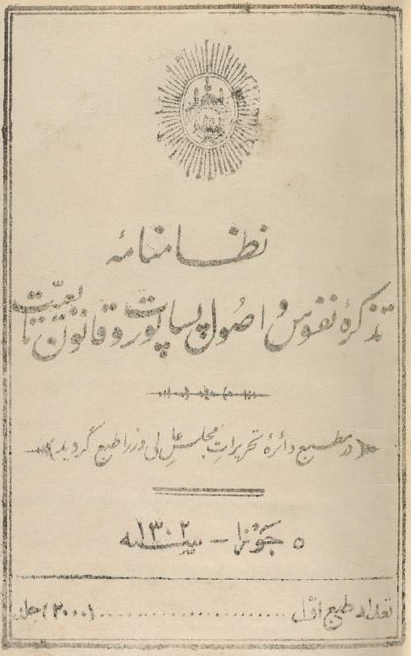 نظامنامهٔ
تذکرهٔ نفوس و اصول پساپورت و قانون تابعیّت
(در مطبع دائرهٔ تحریرات مجلس عالی وزرا طبع گردید)
۵ جوزا - سنه ۱۳۰۲
تعداد طبع اوّل .................... (۲۰۰۰) جلد